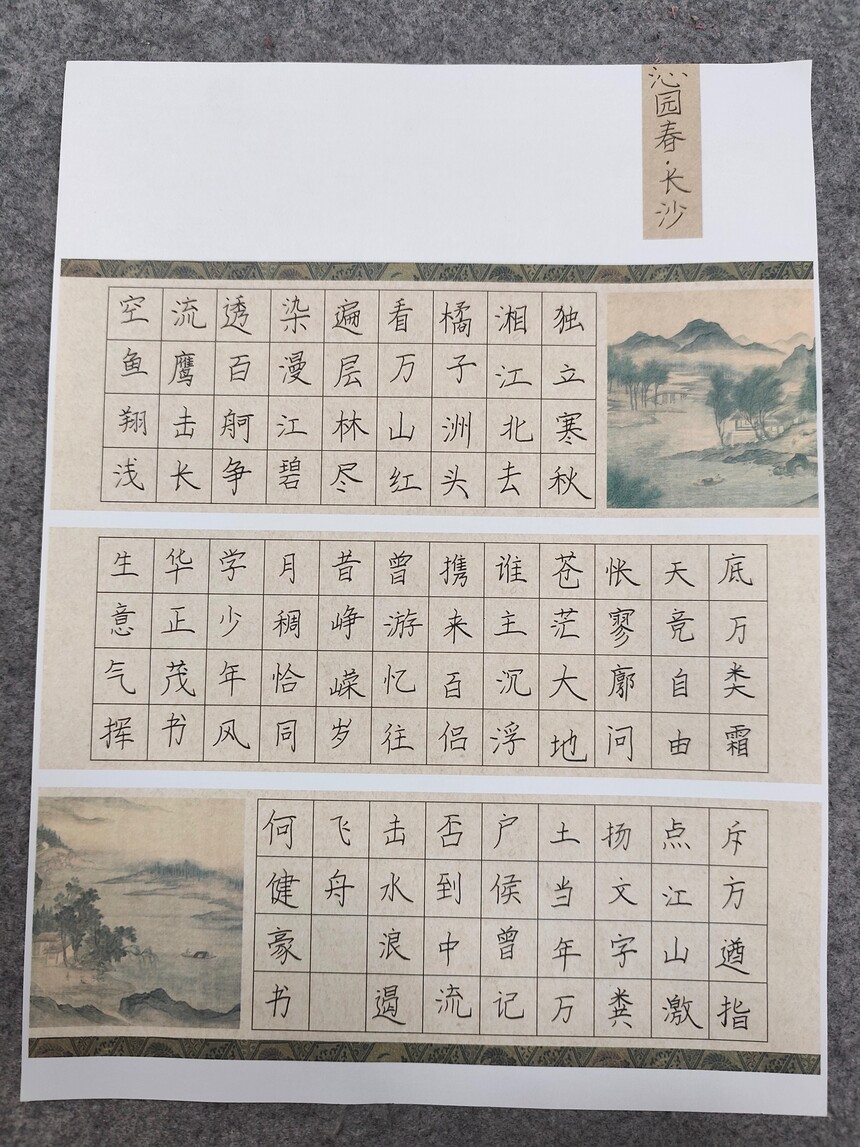 沁园春·长沙
独立寒秋
湘江北去
橘子洲头
看万山红
遍层林尽
染漫江碧
透百舸争
流鹰击长
空鱼翔浅
底万类霜
天竞自由
怅寥廓问
苍茫大地
谁主沉浮
携来百侣
曾游忆往
昔峥嵘岁
月稠恰同
学少年风
华正茂书
生意气挥
斥方遒指
点江山激
扬文字粪
土当年万
户侯曾记
否到中流
击水浪遏
飞舟
何健豪书